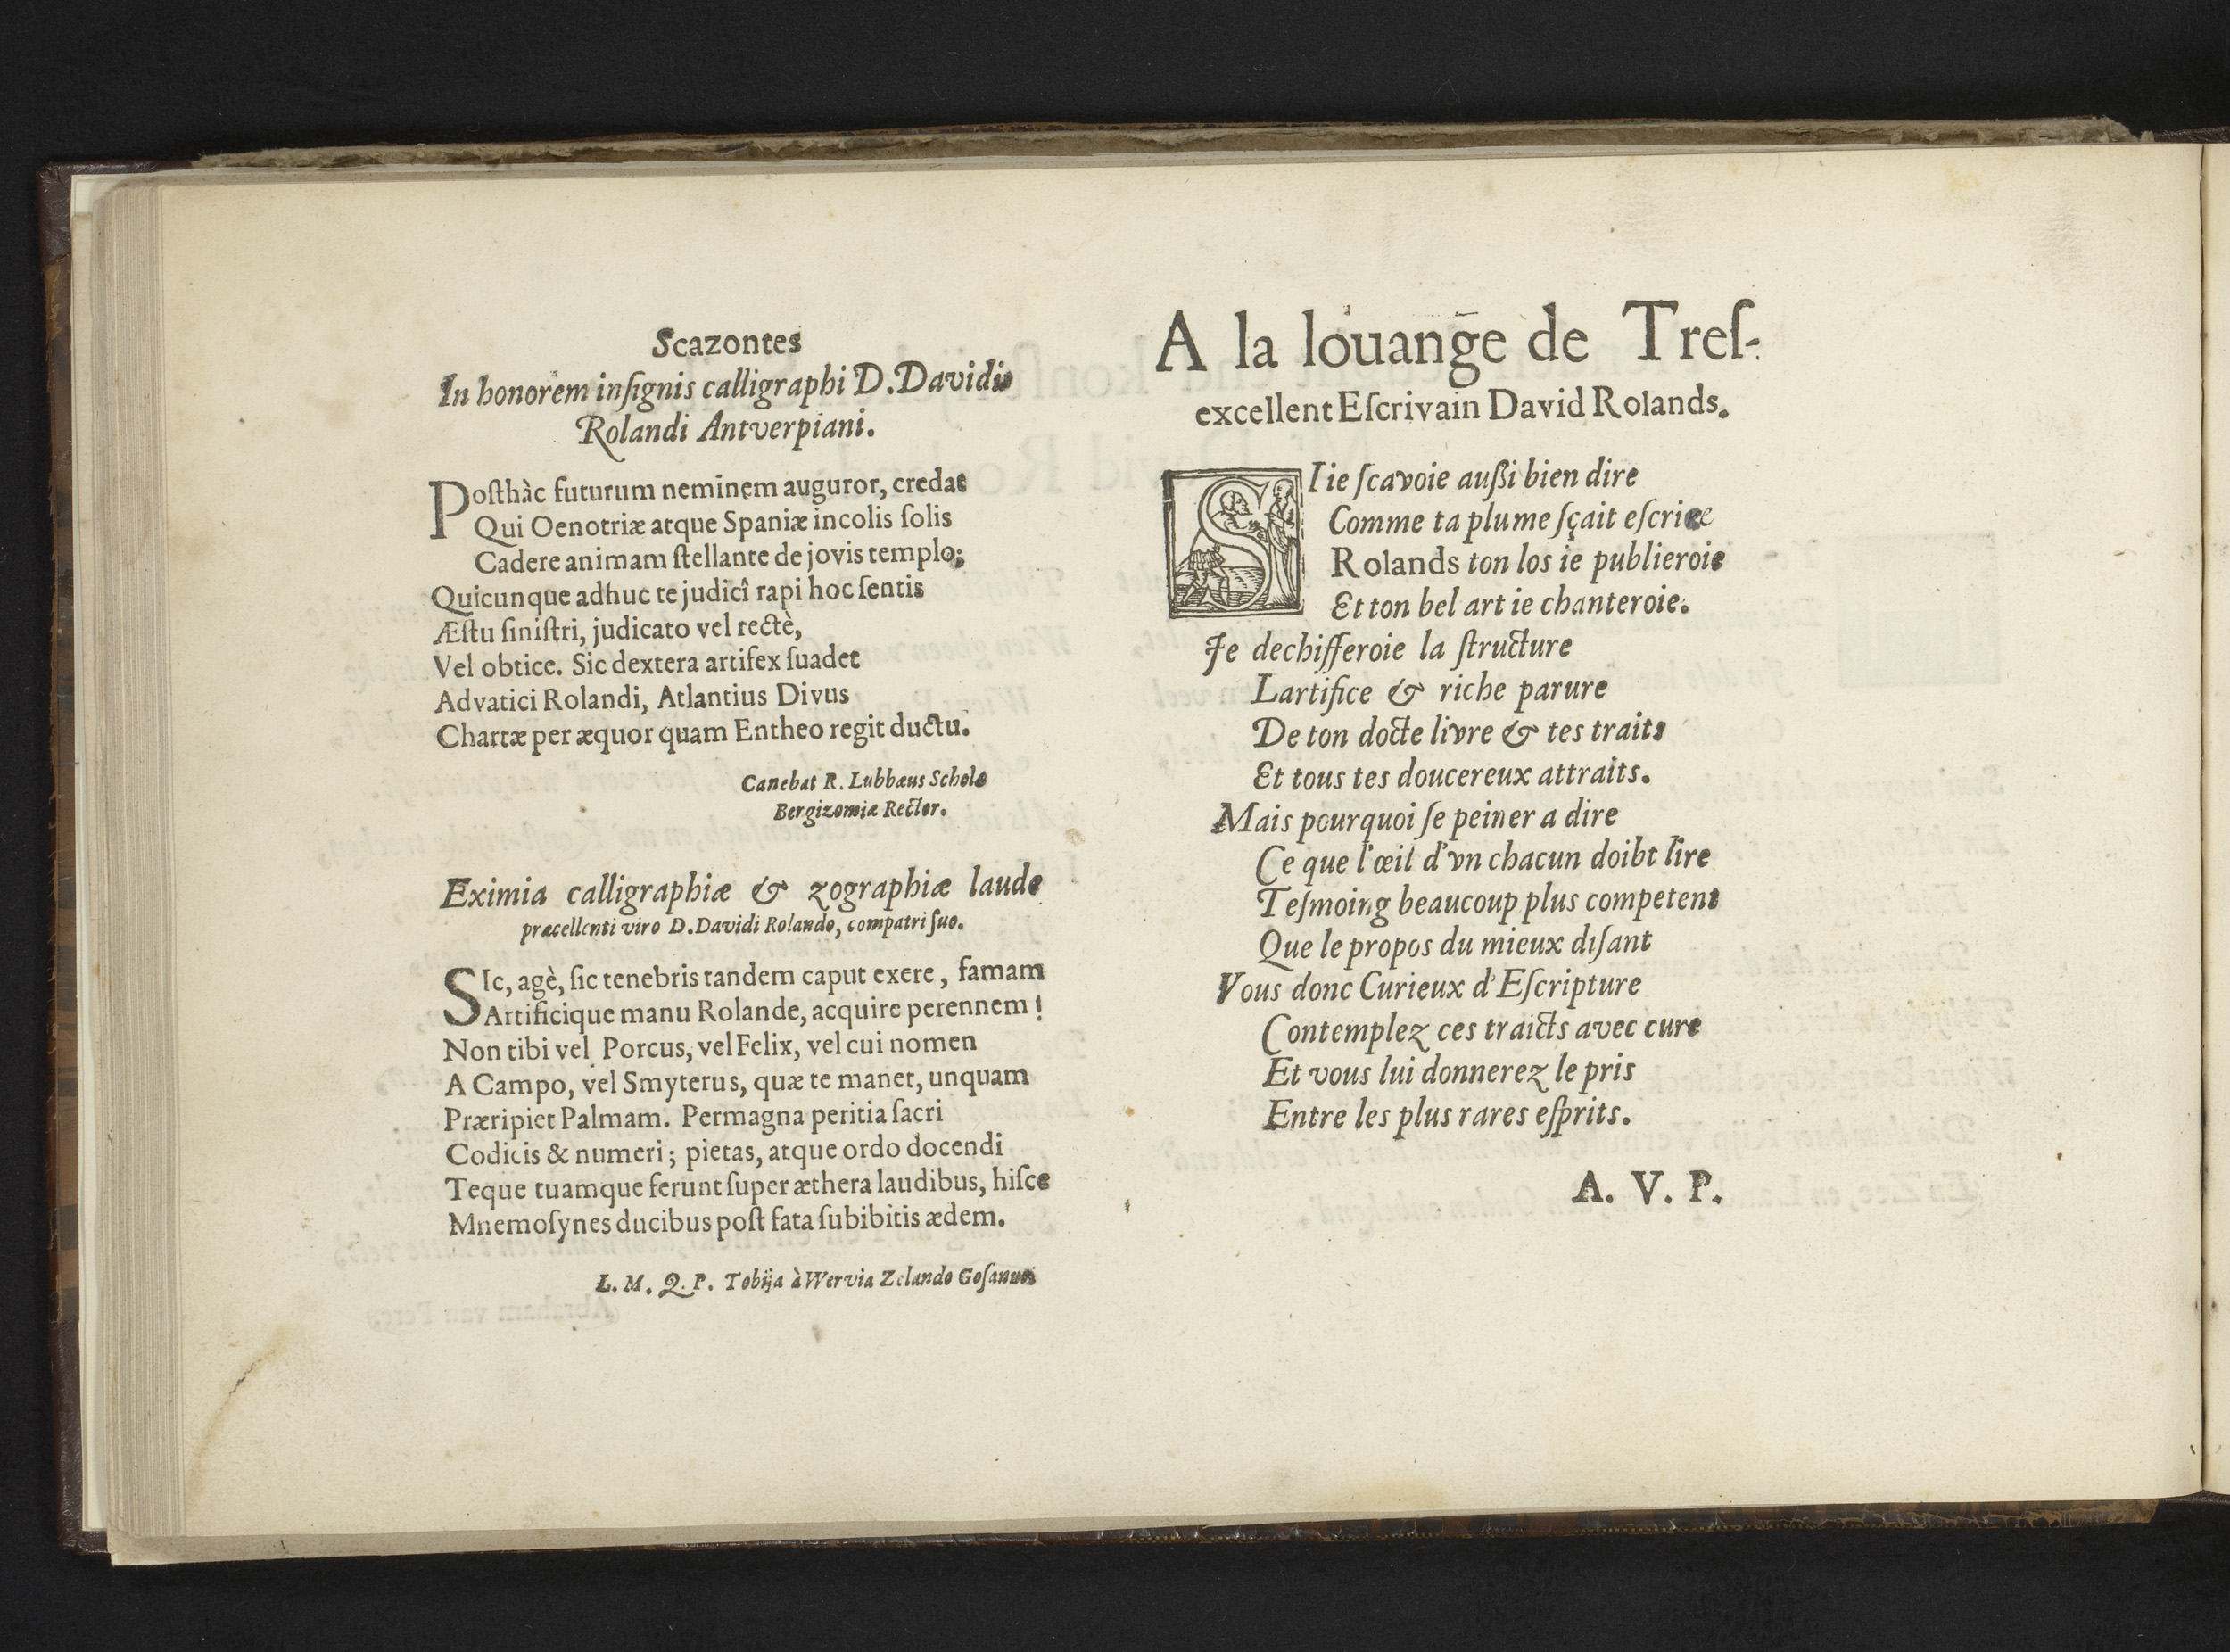 Scazontes
In honorem inſignis calligraphi D. Davidis
Rolandi Antverpiani.
Poſthàc futurum neminem auguror, credat
Qui Oenotriæ atque Spaniæ incolis ſolis
Cadere animam ſtellante de jovis templo;
Quicunque adhuc te judicî rapi hoc ſentis
Æſtu ſiniſtri, judicato vel rectè,
Vel obtice. Sic dextera artifex ſuadet
Advatici Rolandi, Atlantius Divus
Chartæ per æquor quam Entheo regit ductu.
Canebat R. Lubbæus Scholæ
Bergizomiæ Rector.
Eximia calligraphiæ & zographiæ laude
præcellenti viro D. Davidi Rolando, compatri ſuo.
SIc, agè, ſic tenebris tandem caput exere, famam
Artificique manu Rolande, acquire perennem!
Non tibi vel Porcus, vel Felix, vel cui nomen
A Campo, vel Smyterus, quæ te manet, unquam
Præripiet Palmam. Permagna peritia ſacri
Codicis & numeri; pietas, atque ordo docendi
Teque tuamque ferunt ſuper æthera laudibus, hiſce
Mnemoſynes ducibus poſt fata ſubibitis ædem.
L. M. Q. P. Tobija à Wervia Zelando Goſanus
A la louange de Treſ-
excellent Eſcrivain David Rolands.
SI ie ſcavoie außi bien dire
Comme ta plume ſçait eſcrire
Rolands ton los ie publieroie
Et ton bel art ie chanteroie.
Je dechifferoie la ſtructure
Lartifice & riche parure
De ton docte livre & tes traits
Et tous tes doucereux attraits.
Mais pourquoi ſe peiner a dire
Ce que l'œil d'vn chacun doibt lire
Teſmoing beaucoup plus competent
Que le propos du mieux diſant
Vous donc Curieux d'Eſcripture
Contemplez ces traicts avec cure
Et vous lui donnerez le pris
Entre les plus rares eſprits.
A. V. P.